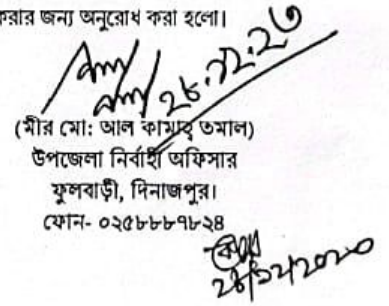 করার জন্য অনুরোধ করা হলো।
২৮.১২.২৩
(মীর মো: আল কামাহ্ তমাল)
উপজেলা নির্বাহী অফিসার
ফুলবাড়ী, দিনাজপুর।
ফোন- ০২৫৮৮৮৭৮২৪